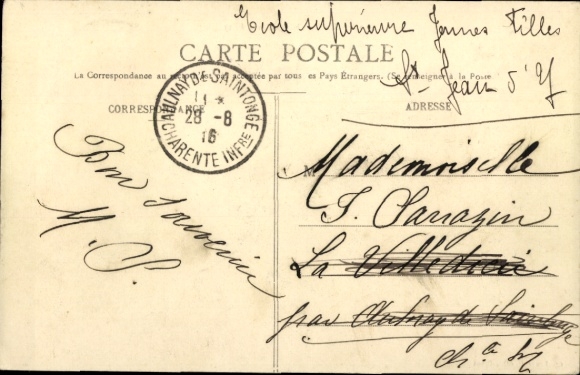 Ecole supérieure Jeunes Filles
St Jean d'Y
CARTE POSTALE
La Correspondance au recto n'est pas acceptée par tous les Pays Étrangers. (Se renseigner à la Poste
CORRESPONDANCE
ADRESSE
AULNAY DE SAINTONGE
11 *
28 - 8
16
CHARENTE INFRE
Bon souvenir
M. S.
M
Mademoiselle
J. Sarrazin
La Villedieu
par Aulnay de Saintonge
Ch. te Inf